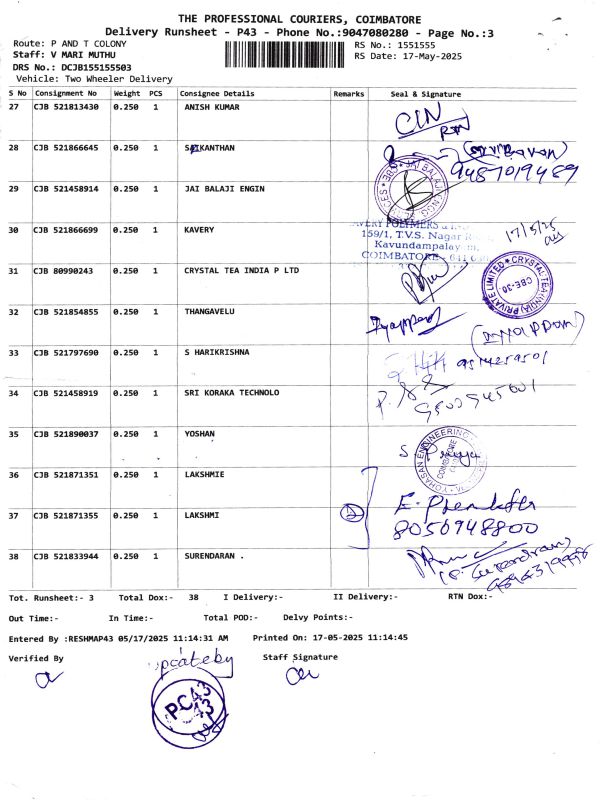 THE PROFESSIONAL COURIERS, COIMBATORE
Delivery Runsheet - P43 - Phone No.:9047080280 - Page No.:3
Route: P AND T COLONY
RS No.: 1551555
Staff: V MARI MUTHU
RS Date: 17-May-2025
DRS No.: DCJB155155503
Vehicle: Two Wheeler Delivery
S No Consignment No Weight PCS Consignee Details Remarks Seal & Signature
27 CJB 521813430 0.250 1 ANISH KUMAR
28 CJB 521866645 0.250 1 SRIKANTHAN
9487019489
29 CJB 521458914 0.250 1 JAI BALAJI ENGIN
JAI BALAJI ENGG
30 CJB 521866699 0.250 1 KAVERY
159/1, T.V.S. Nagar
Kavundampalay
COIMBATORE - 641
17/5/25
31 CJB 80990243 0.250 1 CRYSTAL TEA INDIA P LTD
CRYSTAL TEA (INDIA) PRIVATE LIMITED
CBE-30
32 CJB 521854855 0.250 1 THANGAVELU
33 CJB 521797690 0.250 1 S HARIKRISHNA
34 CJB 521458919 0.250 1 SRI KORAKA TECHNOLO
35 CJB 521890037 0.250 1 YOSHAN
S. Priya
36 CJB 521871351 0.250 1 LAKSHMIE
37 CJB 521871355 0.250 1 LAKSHMI
8056948800
38 CJB 521833944 0.250 1 SURENDARAN .
Tot. Runsheet:- 3 Total Dox:- 38 I Delivery:- II Delivery:- RTN Dox:-
Out Time:- In Time:- Total POD:- Delvy Points:-
Entered By :RESHMAP43 05/17/2025 11:14:31 AM Printed On: 17-05-2025 11:14:45
Verified By
Staff Signature